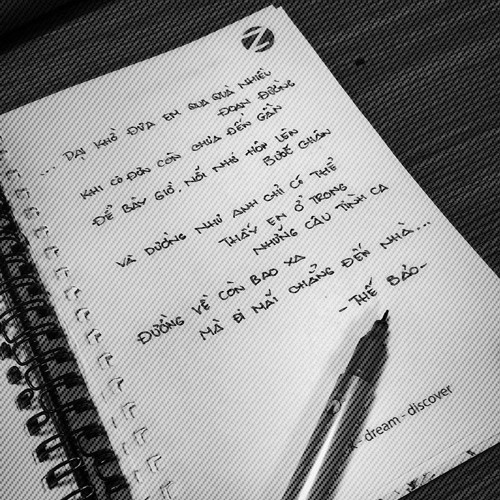 Z
... DẠI KHỜ ĐƯA EM QUA QUÁ NHIỀU
ĐOẠN ĐƯỜNG
KHI CÔ ĐƠN CÒN CHƯA ĐẾN GẦN
ĐỂ BÂY GIỜ, NỖI NHỚ HÓP LÊN
BƯỚC CHÂN
VÀ DƯỜNG NHƯ ANH CHỈ CÓ THỂ
THẤY EM Ở TRONG
NHỮNG CÂU TÌNH CA
ĐƯỜNG VỀ CÒN BAO XA
MÀ ĐI MÃI CHẲNG ĐẾN NHÀ...
- THẾ BẢO-
- dream - discover